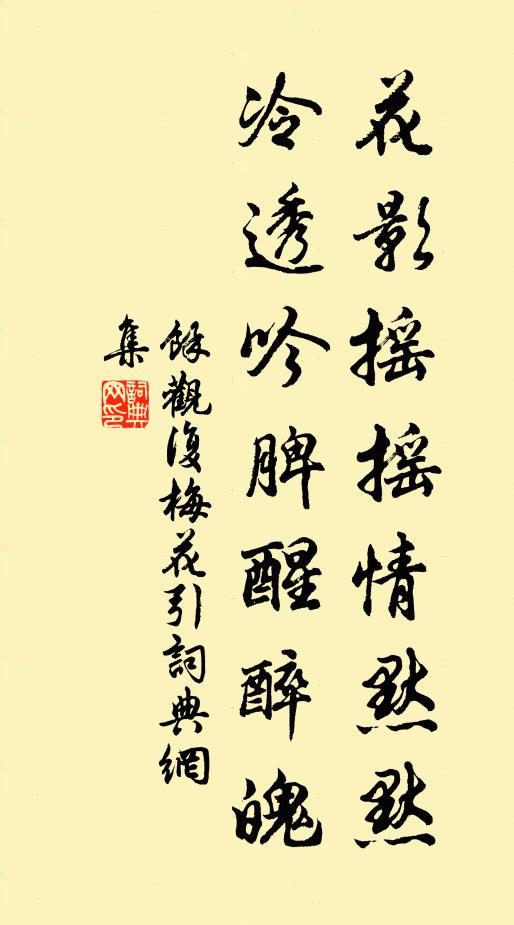 花影摇摇情默默
冷透吟脾醒醉魄
餘觀復梅花引詞典網
集
詞典
网印